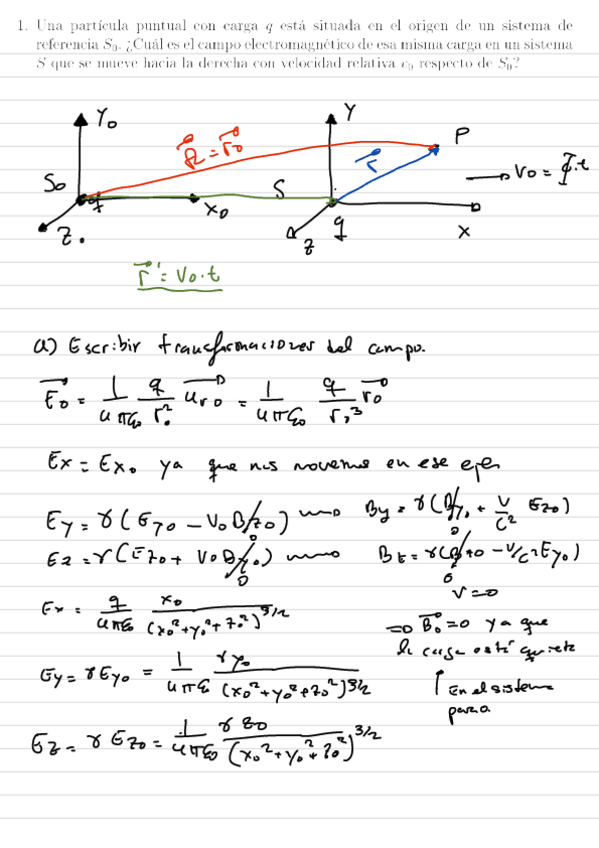 1. Una partícula puntual con carga q está situada en el origen de un sistema de
referencia S₀. ¿Cuál es el campo electromagnético de esa misma carga en un sistema
S que se mueve hacia la derecha con velocidad relativa v₀ respecto de S₀?
Y₀ Y P
R⃗ = r⃗₀ r⃗
S₀ S V₀ =
q X₀ q X
Z₀ Z
r⃗' = V₀·t
a) Escribir transformaciones del campo.
E⃗₀ = 1/(4πε₀) q/r₀² u⃗r₀ = 1/(4πε₀) q/r₀³ r⃗₀
Ex = Ex₀ ya que nos movemos en ese eje
Ey = γ(Ey₀ - V₀ Bz₀) By = γ(By₀ + V/c² Ez₀)
0 0
Ez = γ(Ez₀ + V₀ By₀) Bz = γ(Bz₀ - V/c² Ey₀)
0 0
V=0
Ex = q/(4πε₀) x₀/(x₀²+y₀²+z₀²)^3/2
⇒ B⃗₀=0 ya que
la carga está quieta
Ey = γEy₀ = 1/(4πε₀) γy₀/(x₀²+y₀²+z₀²)^3/2
↑ En el sistema
para
Ez = γ Ez₀ = 1/(4πε₀) γz₀/(x₀²+y₀²+z₀²)^3/2